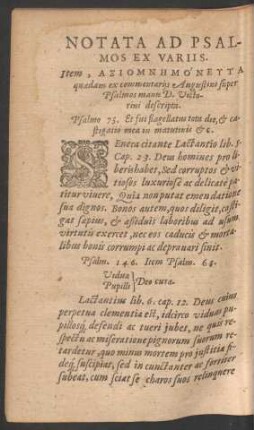 NOTATA AD PSAL-
MOS EX VARIIS.
Item, ΑΞΙΟΜΝΗΜΌΝΕΥΤΑ
quædam ex commentariis Augustini super
Psalmos manu D. Victo-
rini descripta.
Psalmo 73. Et fui flagellatus tota die, & ca-
stigatio mea in matutinis &c.
SEneca citante Lactantio lib. 5.
Cap. 23. Deus homines pro li-
beris habet, Sed corruptos & vi-
tiosos luxuriosè ac delicatè pa-
titur vivere, Quia non putat emendatione
sua dignos. Bonos autem, quos diligit, casti-
gat sæpius, & assiduis laboribus ad usum
virtutis exercet, nec eos caducis & morta-
libus bonis corrumpi ac depravari sinit.
Psalm. 146. Item Psalm. 68.
Viduæ
Pupilli
Deo curæ.
Lactantius lib. 6. cap. 12. Deus cuius
perpetua clementia est, idcirco viduas pu-
pillosq; defendi ac tueri jubet, ne quis re-
spectu ac miseratione pignorum suorum re-
tardetur, quo minus mortem pro justitia fi-
deq; suscipiat, sed incunctanter ac fortiter
subeat, cum sciat se charos suos relinquere